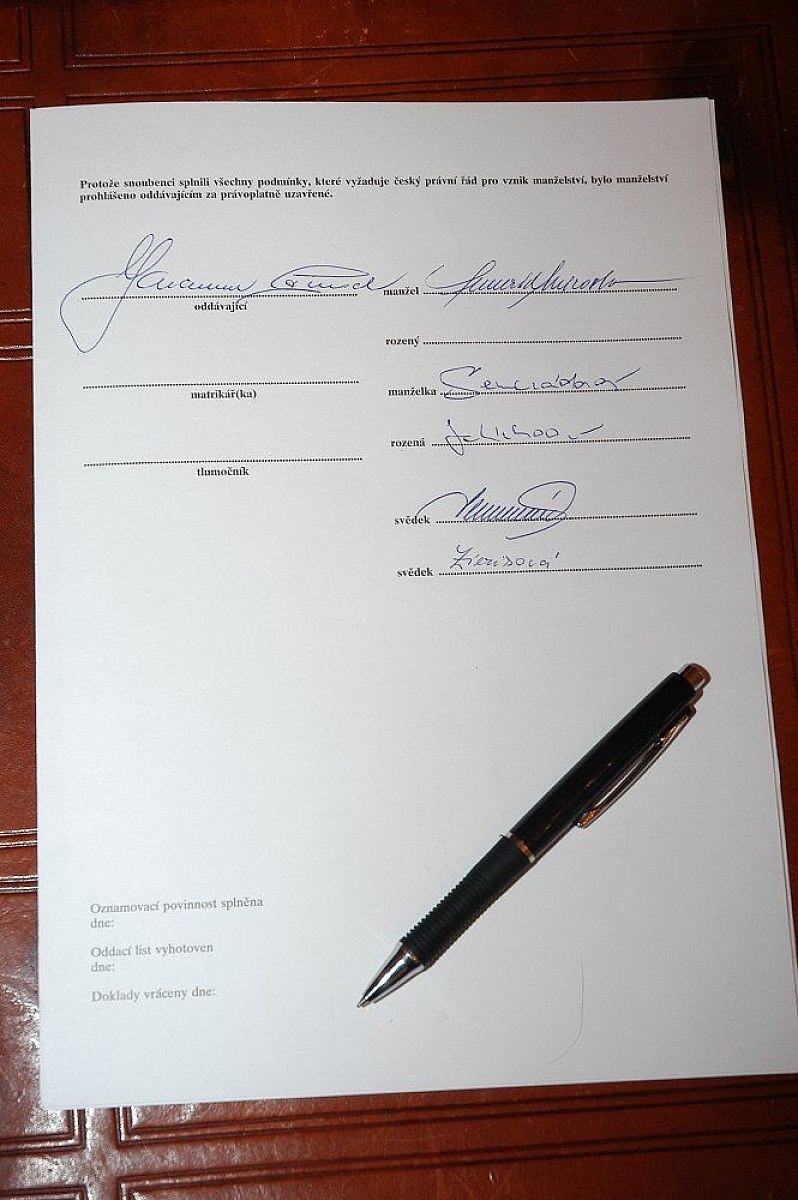 Protože snoubenci splnili všechny podmínky, které vyžaduje český právní řád pro vznik manželství, bylo manželství
prohlášeno oddávajícím za právoplatně uzavřené.
oddávající
manžel
rozený
matrikář(ka)
manželka
rozená
tlumočník
svědek
svědek Zierisová
Oznamovací povinnost splněna
dne:
Oddací list vyhotoven
dne:
Doklady vráceny dne: